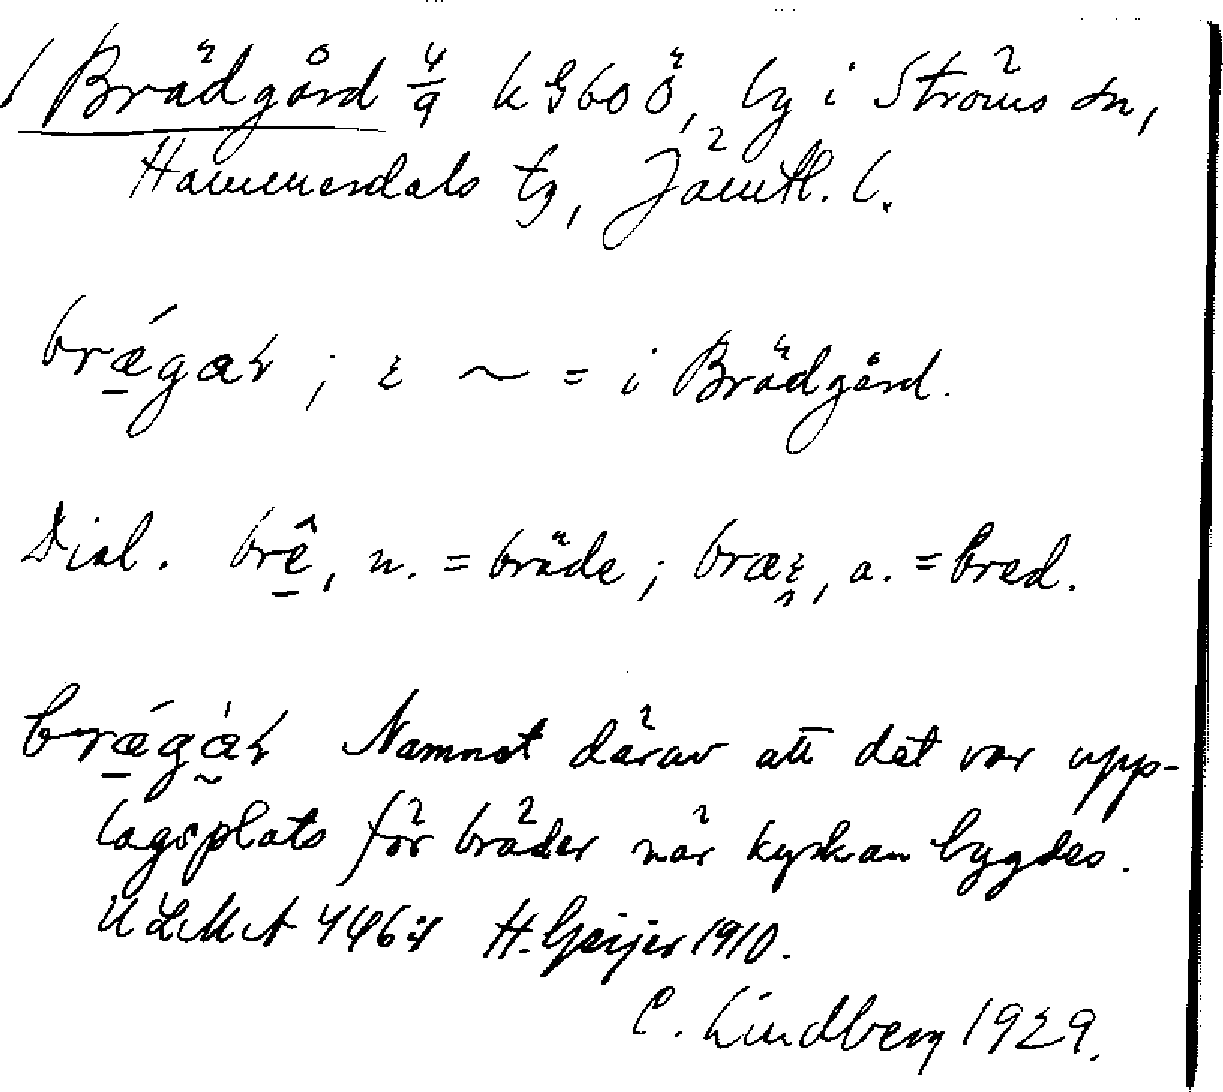 Brädgård 4/9 k G60 Ö, by i Ströms sn,
Hammerdals tg, Jämtl. l.
brǽgaɽ ; ɪ ~ = i Brädgård.
Dial. brê, n. = bräde ; bræɪ, a. = bred.
brǽgàɽ Namnet därav att det var upp-
lagsplats för bräder när kyrkan bygdes.
ULMA 446:4 H. Geijer 1910.
C. Lindberg 1929.